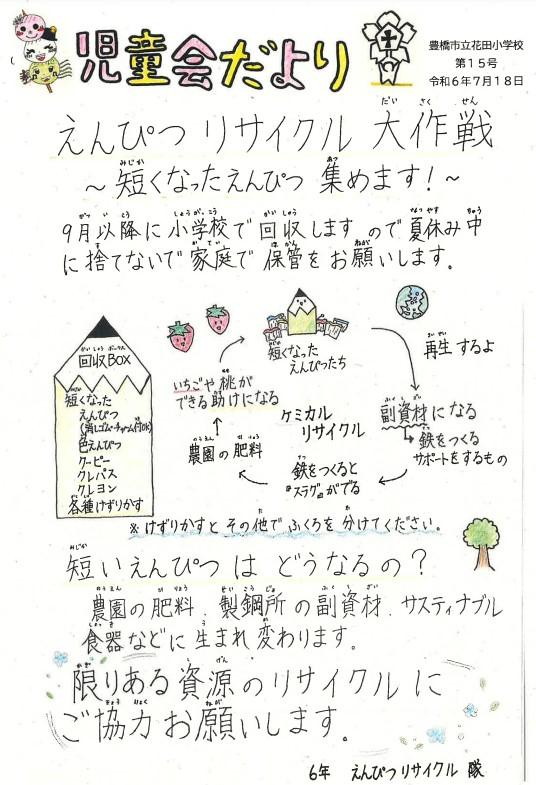 児童会だより
豊橋市立花田小学校
第15号
令和6年7月18日
えんぴつリサイクル 大作戦
～短くなったえんぴつ 集めます!～
9月以降に小学校で回収しますので夏休み中
に捨てないで家庭で保管をお願いします。
回収BOX
短くなった
えんぴつ
(消しゴム・チャーム付OK)
色えんぴつ
クーピー
クレパス
クレヨン
各種けずりかす
短くなった
えんぴつたち
再生するよ
副資材になる
→鉄をつくる
サポートをするもの
鉄をつくると
『スラグ』がでる
農園の肥料
いちごや桃が
できる助けになる
ケミカル
リサイクル
※けずりかすとその他でふくろを分けてください。
短いえんぴつは どうなるの?
農園の肥料、製鋼所の副資材、サスティナブル
食器などに生まれ変わります。
限りある資源のリサイクルに
ご協力お願いします。
6年 えんぴつリサイクル 隊